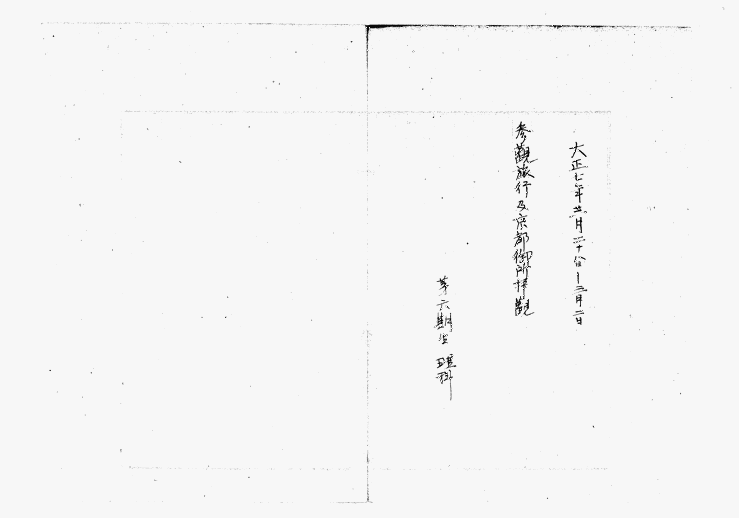 大正七年 月二十 日ー三月二日
参觀旅行及京都御所拝觀
第六期生 理科